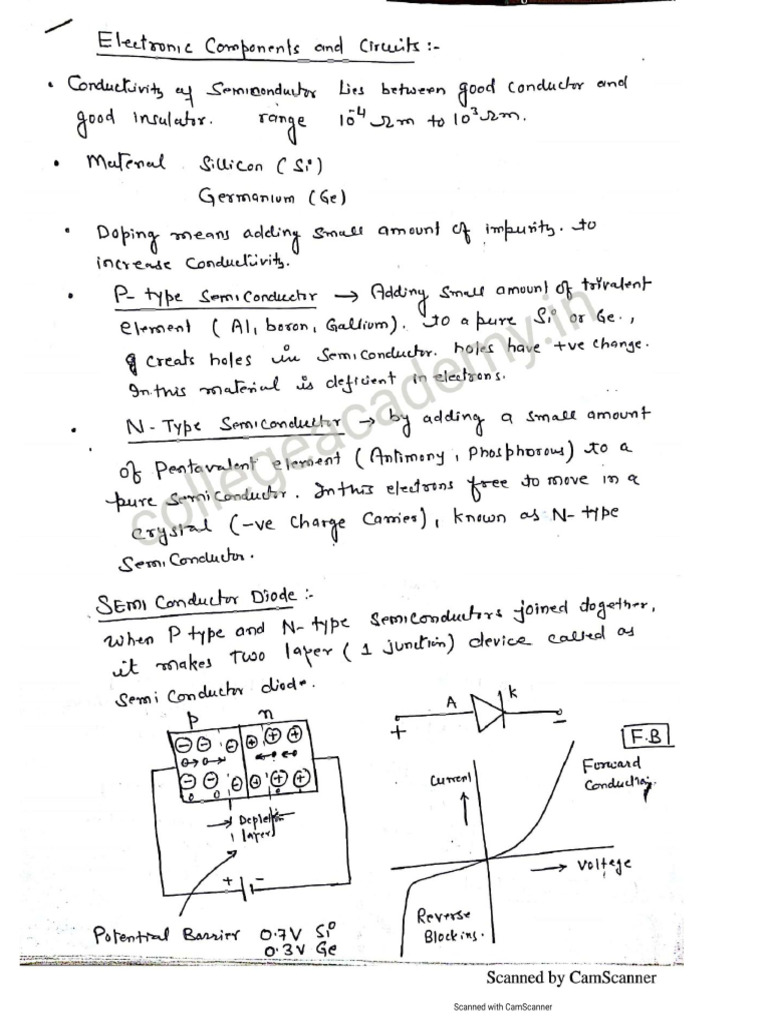 Electronic Components and Circuits :-
• Conductivity of Semiconductor Lies between good conductor and
good insulator. range 10⁻⁴ Ωm to 10³ Ωm.
• Material Sillicon (Si)
Germanium (Ge)
• Doping means adding small amount of impurity. to
increase Conductivity.
• P- type semiconductor → Adding small amount of trivalent
element (Al, boron, Gallium). to a pure Si or Ge.,
creats holes in semiconductor. holes have +ve charge.
In this material is deficient in electrons.
• N-Type Semiconductor → by adding a small amount
of Pentavalent element (Antimony, Phosphorous) to a
pure semiconductor. In this electrons free to move in a
crystal (-ve charge Carries), known as N-type
Semiconductor.
collegeacademy.in
SEMI Conductor Diode :-
when P type and N-type semiconductors joined together,
it makes Two layer (1 junction) device called as
Semi Conductor diode.
P n
A K
+ −
F.B
Forward
Conducting
Current
Voltage
Depletion
layer
+ -
Reverse
Blocking.
Potential Barrier 0.7V Si
0.3V Ge
Scanned by CamScanner
Scanned with CamScanner